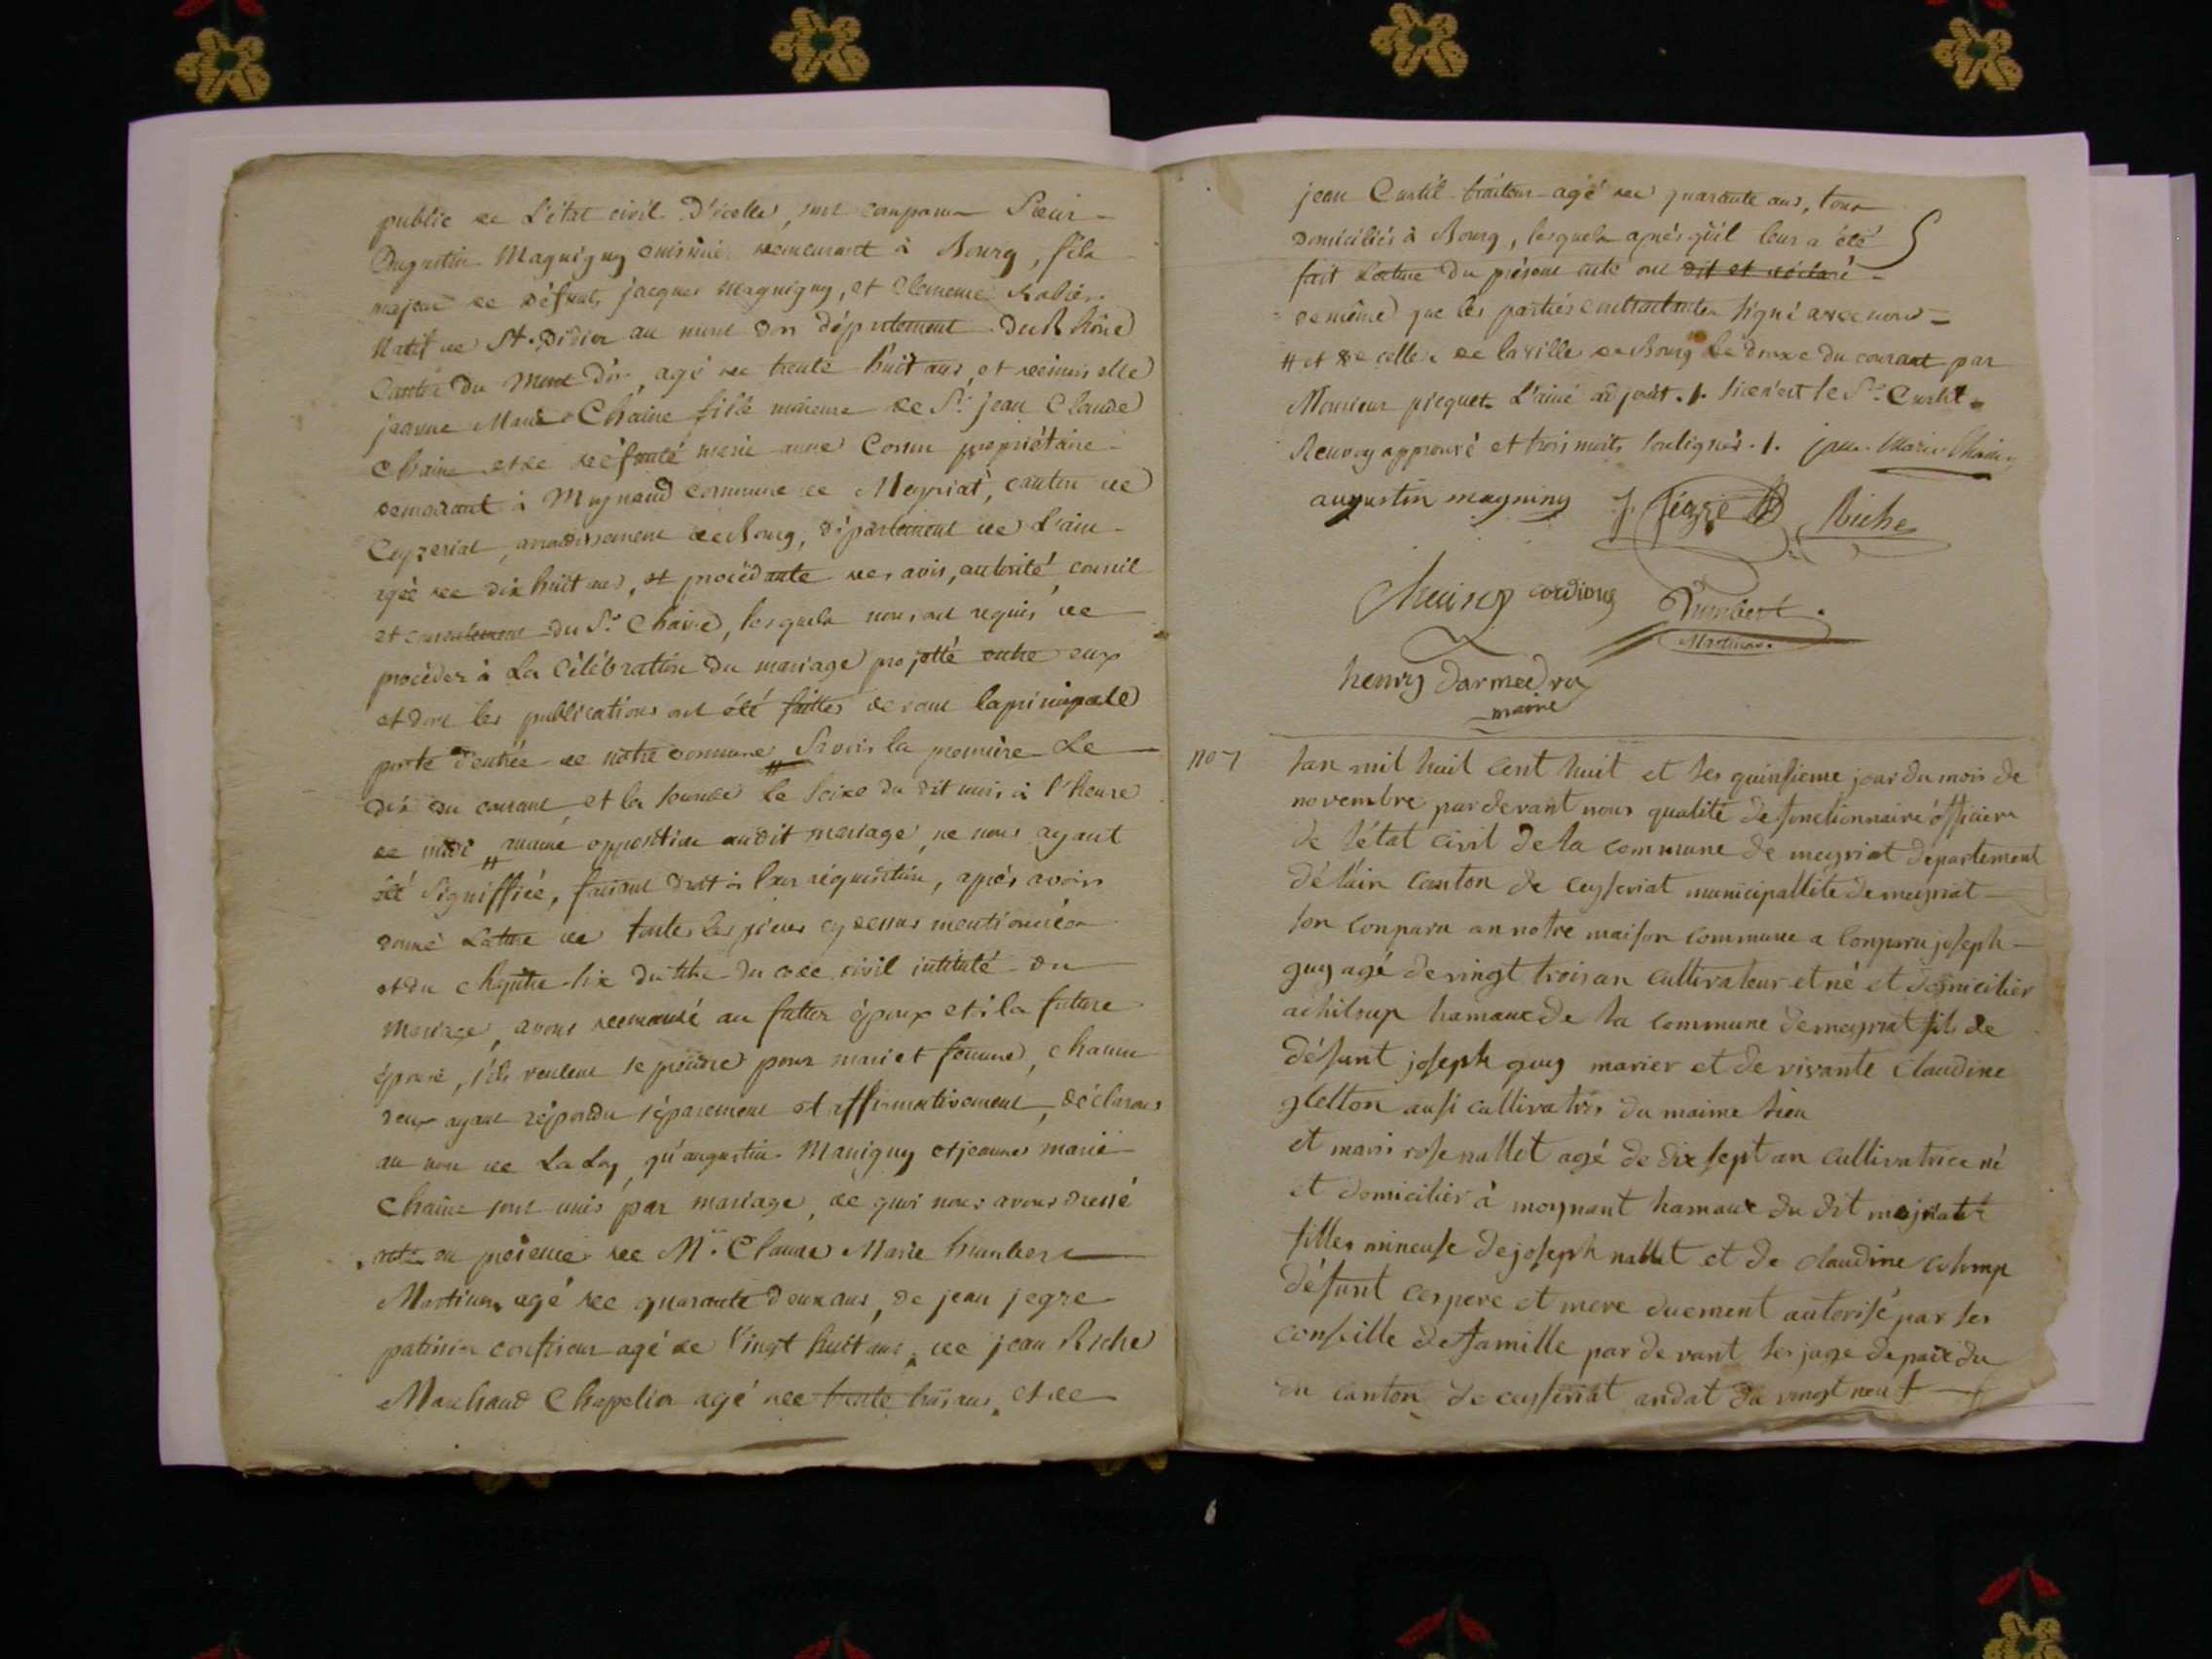 public de L'état civil d'icelle, sont comparu Sieur
Augustin Magnigny cuisinier demeurant à Bourg, fils
majeur de défunts jacques magnigny, et Clemence
Natif de St. Didier au mont Dor département du Rhône
Canton du Mont Dor, agé de trente huit ans, et demoiselle
jeanne Marie Chaine fille mineure de Sr. jean Claude
Chaine et de défunte marie anne propriétaire
demeurant à Moynand commune de Meyriat, canton de
Ceyzeriat, arrondissement de Bourg, département de L'ain
agée de dix huit ans, et procédante des avis, autorité, conseil
et consentement du Sr. Chaine, lesquels nous ont requis de
procéder à La Célébration du mariage projetté entre eux
et dont les publications ont été faittes devant la principale
porte d'entrée de notre commune Savoir la première Le
dix du courant et la seconde le Seize du dit mois à l'heure
de midi # aucune opposition audit mariage ne nous ayant
été Signiffiée, faisant droit à leur réquisition, après avoir
donné Lecture de toutes les pièces cy dessus mentionnées
et du chapitre six du titre du code civil intitulé du
Mariage, avons demandé au futtur époux et à la future
épouse, s'ils veulent se prendre pour mari et femme, chacun
deux ayant répondu séparement et affirmativement, déclarons
au nom de La Loy, qu'augustin Manigny et jeanne marie
Chaine sont unis par mariage, de quoi nous avons dressé
acte en présence de Mr. Claude Marie humbert
Martinon agé de quarante deux ans, de jean jegre
patissier confiseur agé de Vingt huit ans, de jean Riche
Marchand Chapelier agé de trente trois ans, et de
jean Curtil traiteur agé de quarante ans, tous
domiciliés à Bourg, lesquels après qu'il leur a été
fait Lecture du présent acte ont dit et déclaré
de même que les parties contractantes signé avec nous
# et de celle de la ville de Bourg Le douze du courant par
Monsieur picquet L'ainé adjoint. /. si ce n'est le Sr. Curtil
Renvoy approuvé et trois mots soulignés. /. jeanne Marie Chaine
augustin magniny J. jégré Riche
Chaine
humbert
Martinon
henry darmedru
maire
no 7
lan mil huit cent huit et les quinsieme jour du mois de
novembre pardevant nous qualité de fonctionnaire officier
de l'état civil de la commune de meyriat departement
de lain canton de ceyseriat municipallité de meyriat
son conparu an notre maison commune a conparu joseph
guy agé de vingt trois an cultivateur et né et domicilier
a hamaux de la commune de meyriat fils de
défunt joseph guy marier et de vivante Claudine
gletton ausi du maime lieu
et marie rose nallet agé de dix sept an cultivatrice né
et domicilier à moynant hamaux du dit meyriat
filles mineuse de joseph nallet et de claudine colomp
défunt ces pere et mere duement autorisé par les
conseille de famille par devant les juge de paix du
du canton de ceyseriat andat du vingt neuf